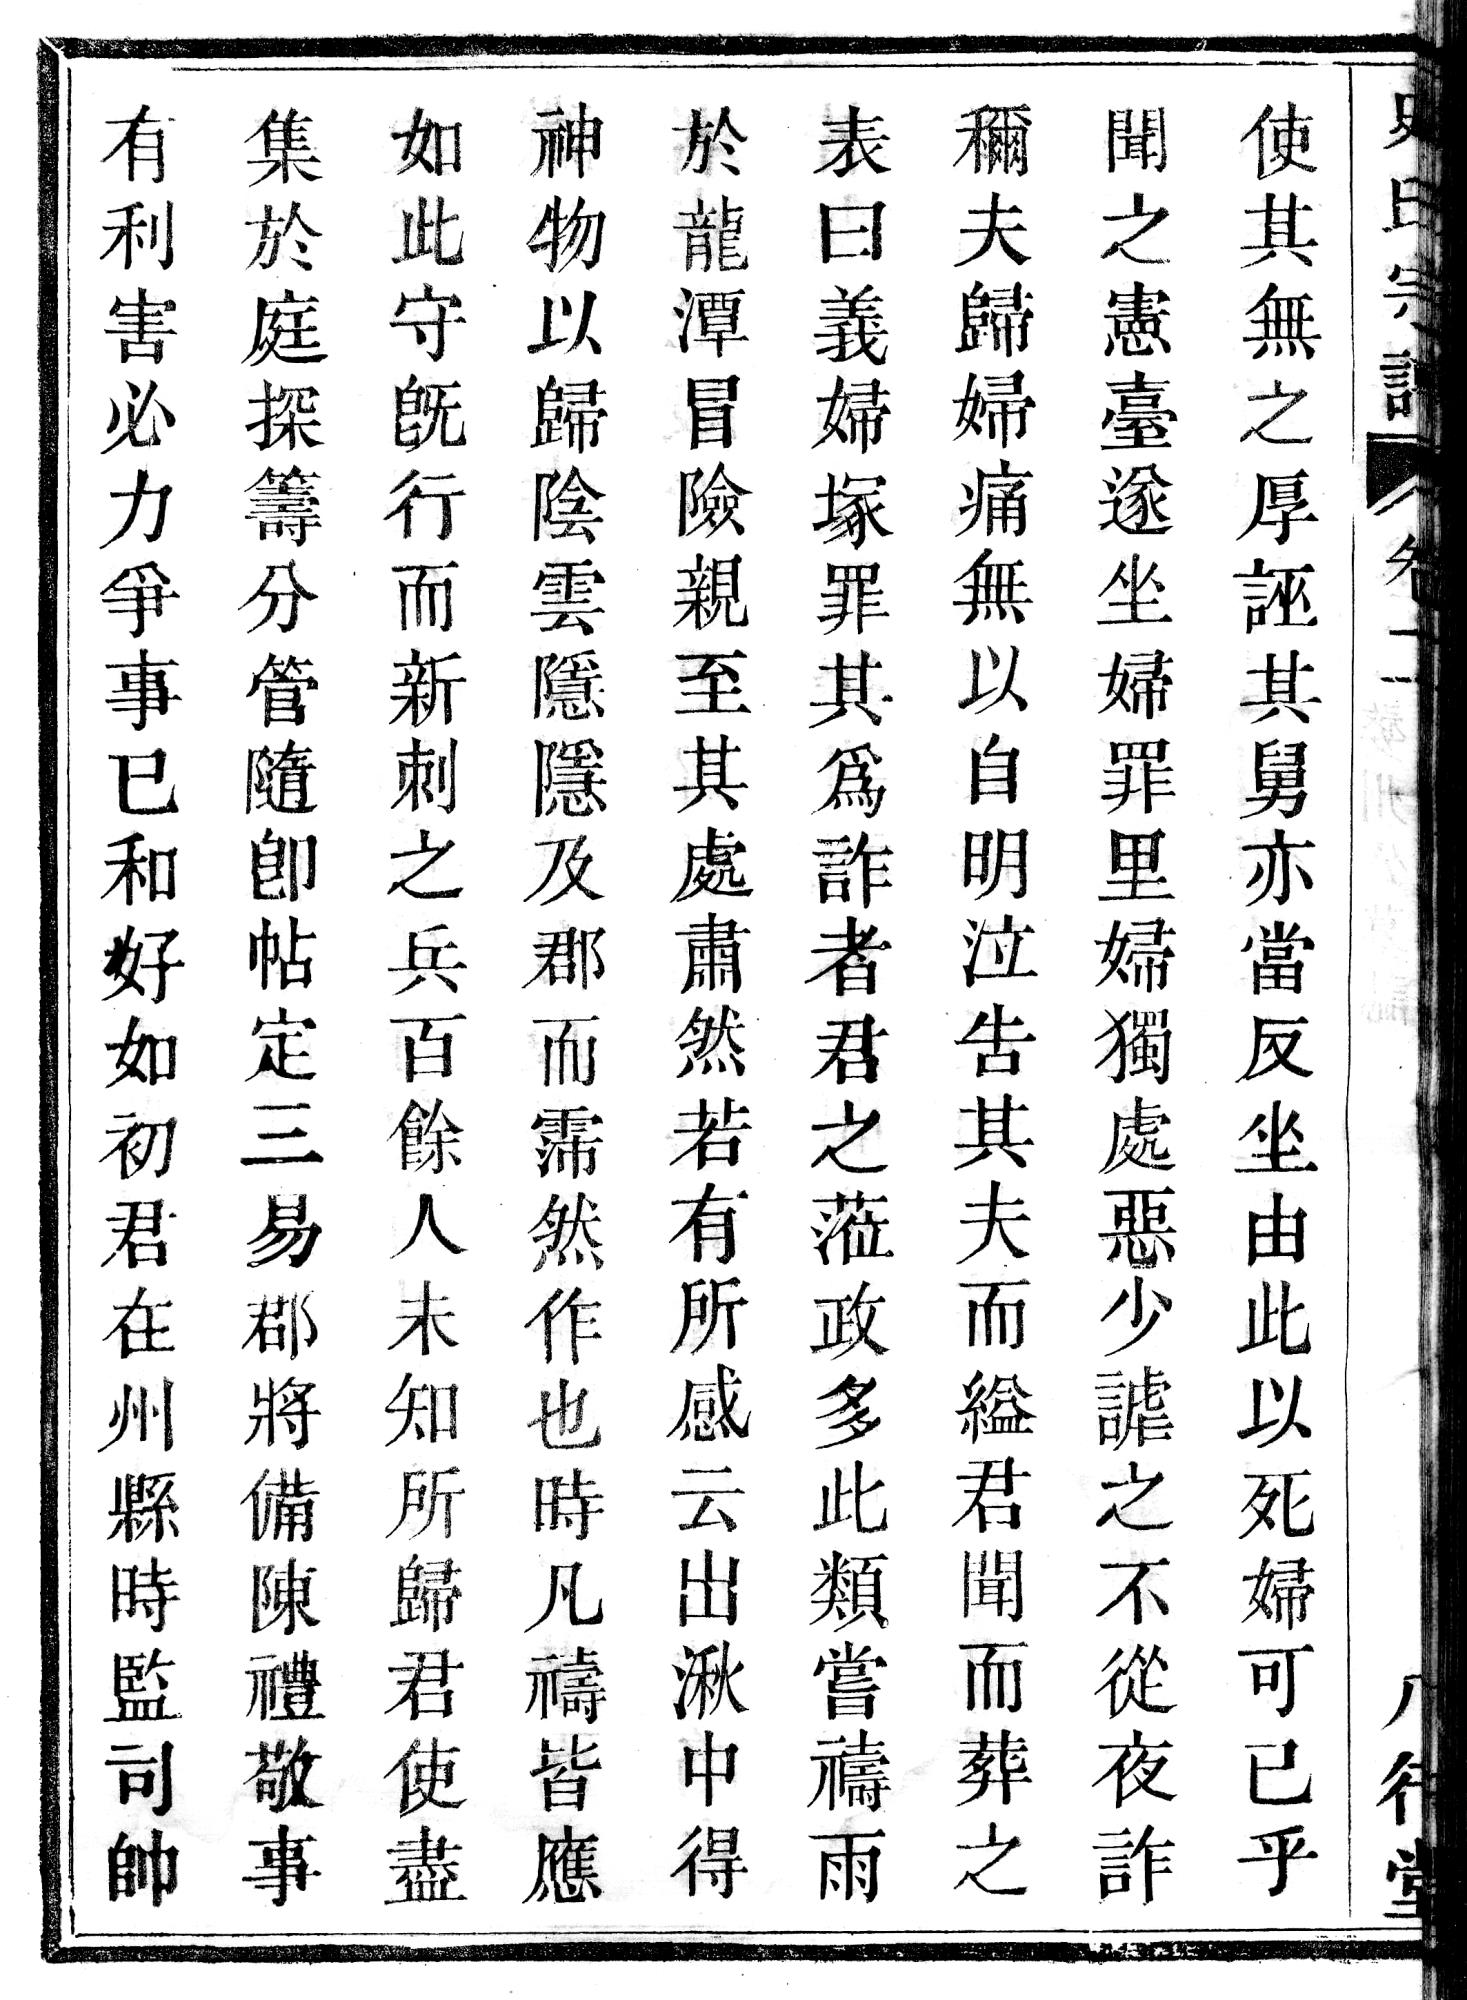 史氏宗譜 卷二 八行堂
使其無之厚誣其舅亦當反坐由此以死婦可已乎
聞之憲臺遂坐婦罪里婦獨處惡少謔之不從夜詐
稱夫歸婦痛無以自明泣告其夫而縊君聞而葬之
表曰義婦塚罪其爲詐者君之蒞政多此類嘗禱雨
於龍潭冒險親至其處肅然若有所感云出湫中得
神物以歸陰雲隱隱及郡而霈然作也時凡禱皆應
如此守旣行而新刺之兵百餘人未知所歸君使盡
集於庭探籌分管隨卽帖定三易郡將備陳禮敬事
有利害必力爭事已和好如初君在州縣時監司帥